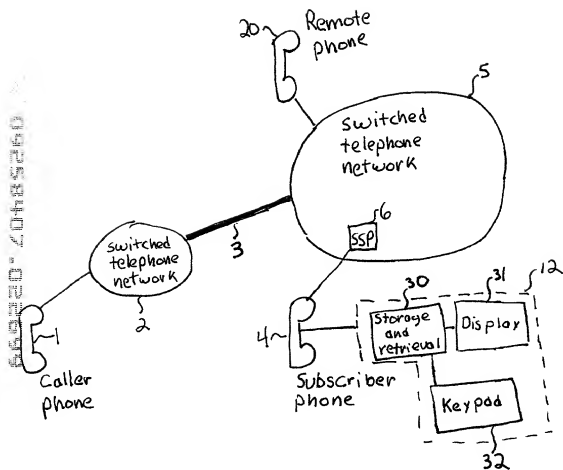 Remote
phone
20
5
switched
telephone
network
6
SSP
3
switched
telephone
network
2
1
Caller
phone
4
Subscriber
phone
30
31
12
Storage
and
retrieval
Display
Keypad
32